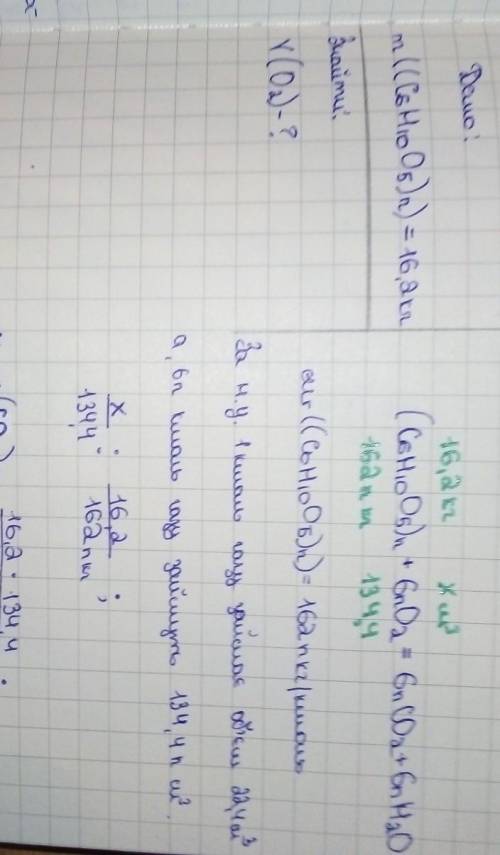 Дано:
m((C6H10O5)n) = 16,2 кг
Знайти:
V(O2) - ?
16,2 кг x м³
(C6H10O5)n + 6nO2 = 6nCO2 + 6nH2O
162n кг 134,4
((C6H10O5)n) = 162n кг/кмоль
За н.у. 1 кмоль газу займає об'єм 22,4 м³
а, 6n кмоль газу займуть 134,4n м³.
x/134,4 : 16,2/162n кг ;
16,2 · 134,4 .